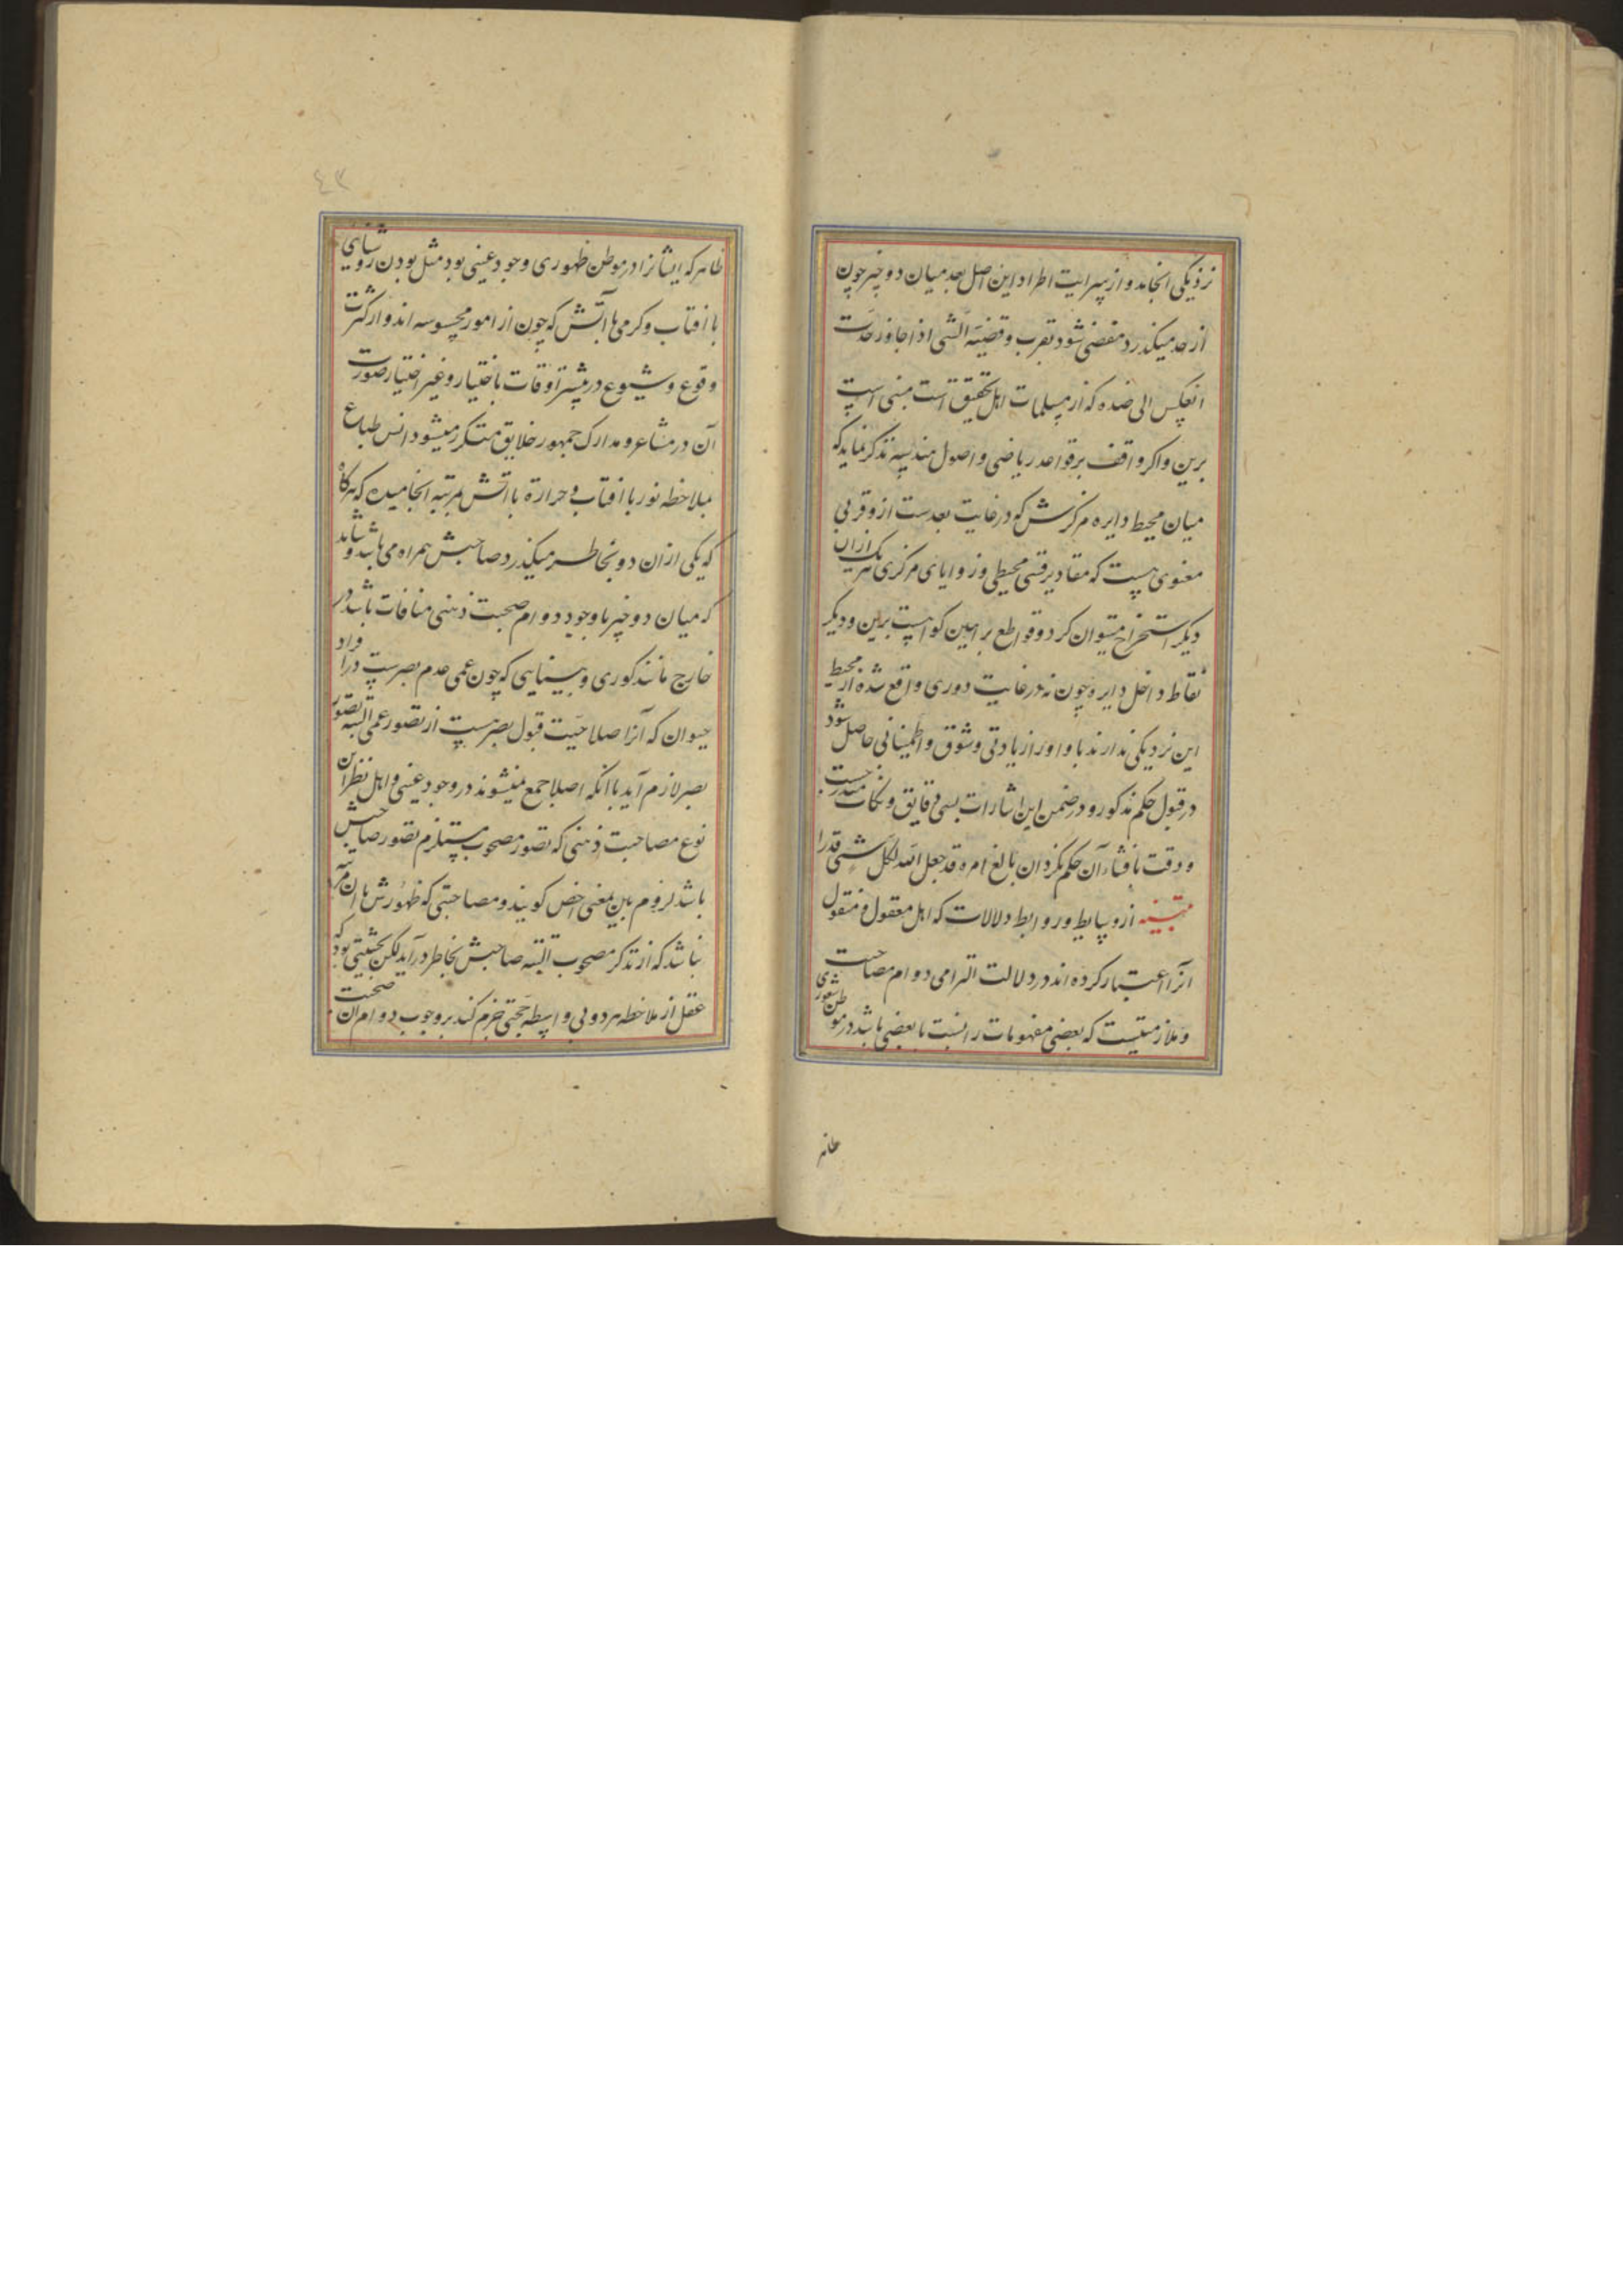 نزدیکی انجامد و از سرایت اطراد این اصل بعد میان دو چیز چون
از حد میکذرد مفضی شود بقرب و قضیّه الشی اذا جاوز حدّه
انعکس الی ضده که از مسلمات اهل تحقیق است مبنی است
برین و اکر واقف بر قواعد ریاضی و اصول هندسیه تذکر نماید که
میان محیط دایره و مرکزش که در غایت بعدست ازو قربی
معنوی هست که مقادیر قسی محیطی و زوایای مرکزی هر یک از ان
دیکر استخراج میتوان کرد و قواطع براهین کواهست برین و دیکر
نقاط داخل دایره چون نه در غایت دوری واقع شده از محیط
این نزدیکی ندارند با او اورا زیادتی وثوق و اطمینانی حاصل شود
در قبول حکم مذکور و در ضمن این اشارات بسی دقایق و نکات مندرجست
و دقت بافشاء آن حکم نکرد ان بالغ امره قد جعل الله لکل شیٔ قدرا
تبیینه از وسایط و روابط دلالات که اهل معقول و منقول
انرا اعتبار کرده اند در دلالت التزامی دوام مصاحبت
و ملازمتیست که بعضی مفهومات را نسبت با بعضی باشد در موطن شعوری
ظاهر
٤٣
ظاهر که ایشانرا در موطن ظهوری وجود عینی بود مثل بودن روشنایی
با افتاب و کرمی با آتش که چون از امور محسوسه اند و از کثرت
وقوع و شیوع در بیشتر اوقات باختیار و غیر اختیار صورت
آن در مشاعر و مدارک جمهور خلایق متکرر میشود انس طباع
بملاحظه نور با افتاب و حرارة با اتش بمرتبه انجامیده که هرکاه
که یکی از ان دو بخاطر میکذرد صاحبش همراه می باشد و شاید
که میان دو چیز با وجود دوام صحبت ذهنی منافات باشد در
خارج مانند کوری و بینایی که چون عمی عدم بصرست در افراد
حیوان که آنرا صلاحیت قبول بصر هست از تصور عمی البته تصور
بصر لازم آید با انکه اصلا جمع نمیشوند در وجود عینی و اهل نظر این
نوع مصاحبت ذهنی که تصور مصحوب مستلزم تصور صاحبش
باشد لزوم بین بمعنی اخص کویند و مصاحبتی که ظهورش با ان مرتبه
نباشد که از تذکر مصحوب البتّه صاحبش بخاطر در آید لکن بحیثیتی بود که
عقل از ملاحظه هر دو بی واسطه حجتی جزم کند بر وجوب دوام ان صحبت